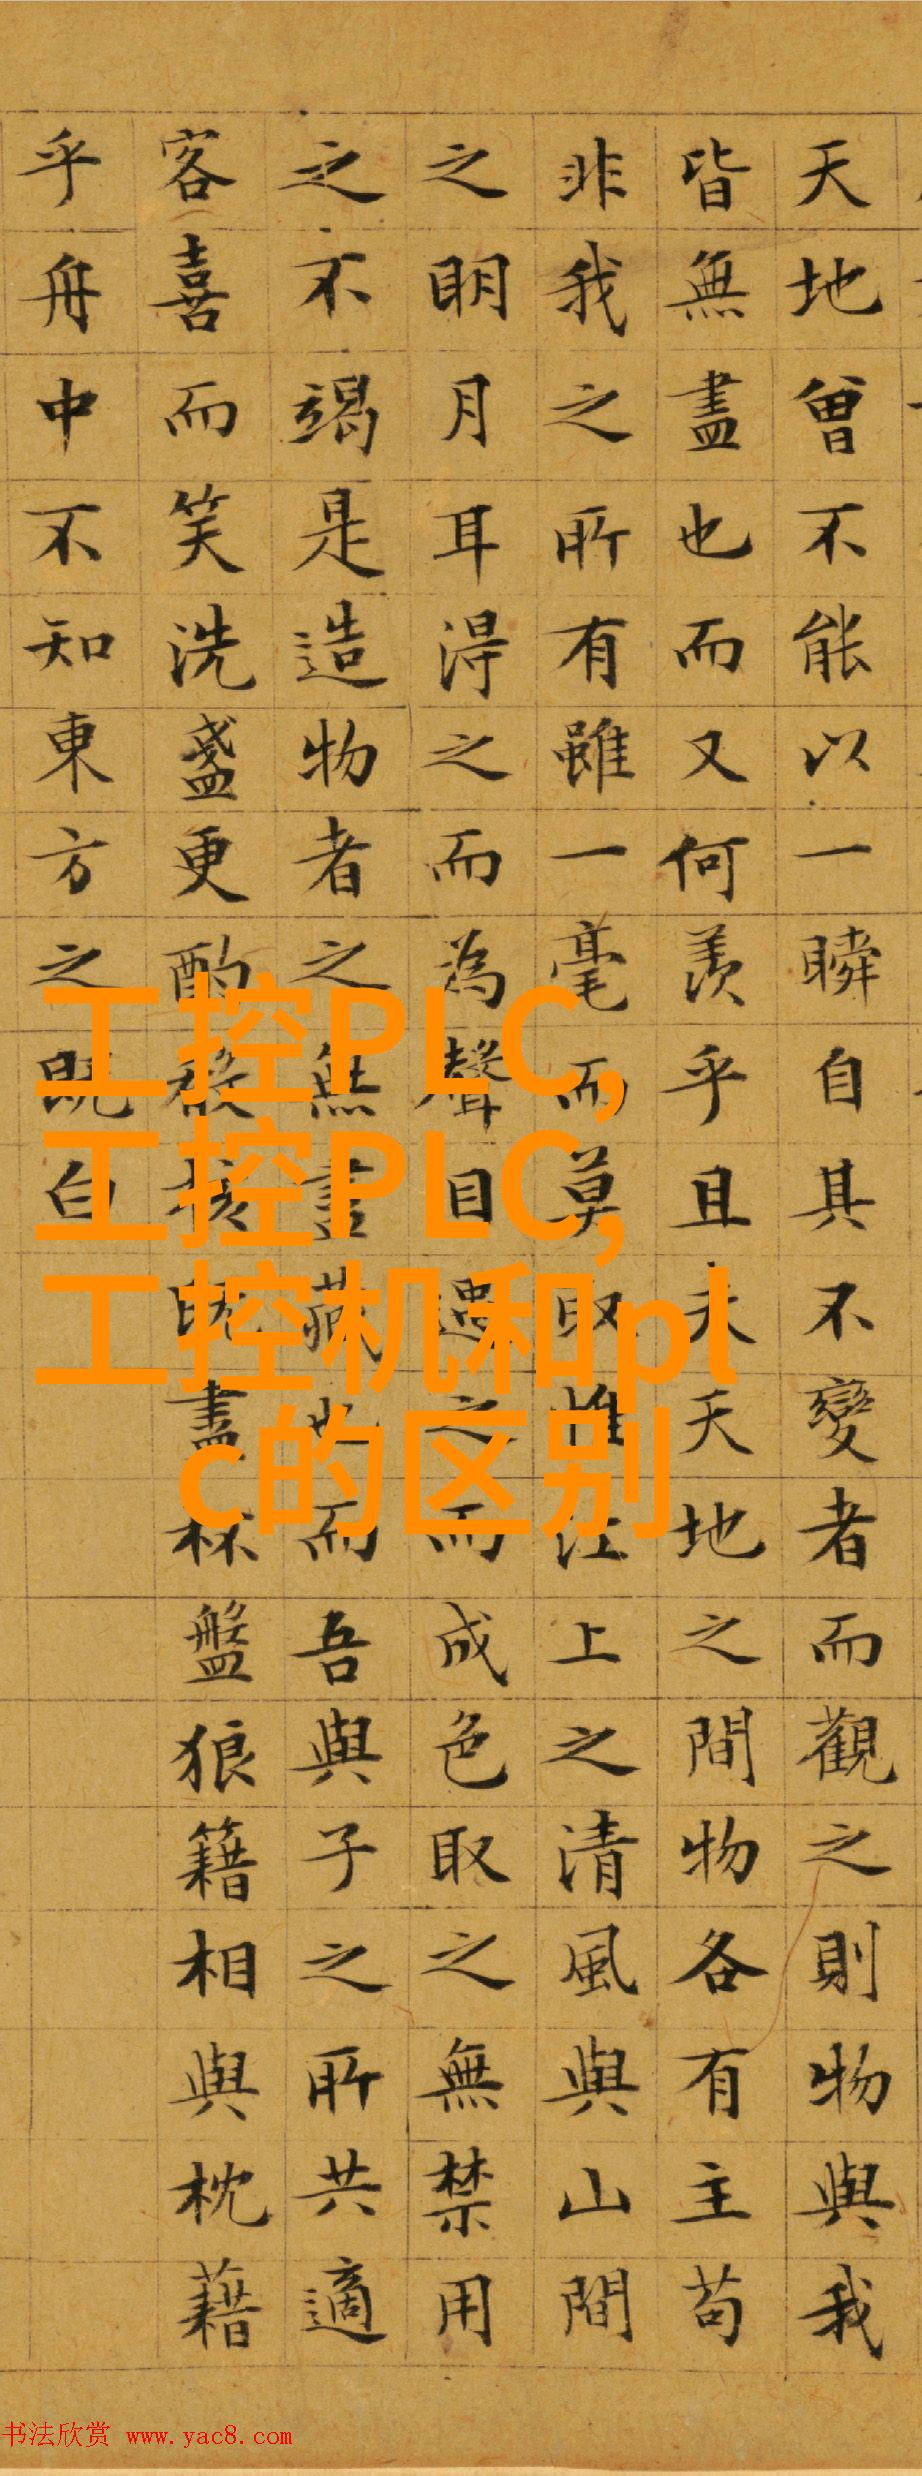 天地曾不能以一瞬自其不變者而觀之則物與我
皆無盡也而又何羨乎且夫天地之間物各有主苟
非我之所有雖一毫而莫取惟江上之清風與山間
之明月耳得之而為聲目遇之而成色取之無禁用
之不竭是造物者之無盡藏也而吾與子之所共適
客喜而笑洗盞更酌殽核既盡杯盤狼籍相與枕藉
乎舟中不知東方之既白
工控PLC,
工控PLC,
工控机和pl
c的区别
书法欣赏 www.yac8.com